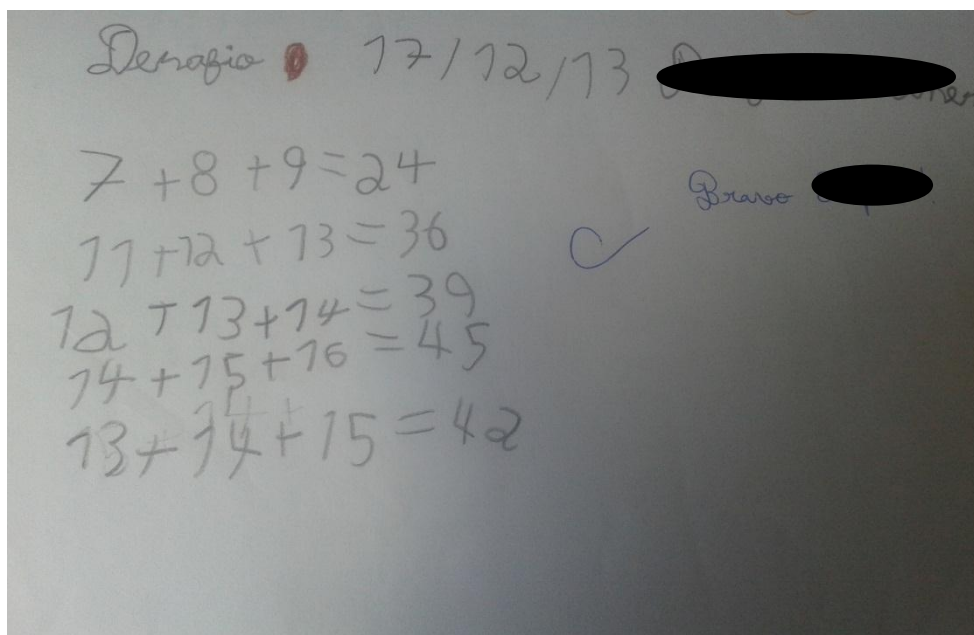 Desafio 17/12/13
7+8+9=24
Bravo
11+12+13=36
12+13+14=39
14+15+16=45
13+14+15=42